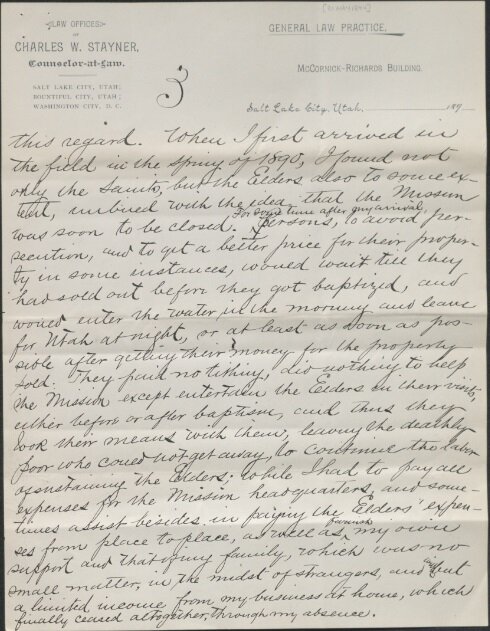 LAW OFFICES
OF
CHARLES W. STAYNER,
Counselor-at-Law.
SALT LAKE CITY, UTAH;
BOUNTIFUL CITY, UTAH;
WASHINGTON CITY, D. C.
GENERAL LAW PRACTICE.
McCORNICK-RICHARDS BUILDING.
5
Salt Lake City, Utah, 189
this regard. When I first arrived in
the field in the Spring of 1890, I found not
only the Saints, but the Elders also to some ex-
tent, imbued with the idea that the Mission
was soon to be closed. For some time after my arrival, persons, to avoid per-
secution, and to get a better price for their proper-
ty in some instances, would wait till they
had sold out before they got baptized, and
would enter the water in the morning and leave
for Utah at night, or at least as soon as pos-
sible after getting their money for the property
sold. They paid no tithing, did nothing to help
the Mission except entertain the Elders in their visits,
either before or after baptism, and thus they
took their means with them, leaving the
poor who could not get away, to continue the labor
of sustaining the Elders; while I had to pay all
expenses for the Mission headquarters, and some-
times assist besides in paying the Elders' expen-
ses from place to place, as well as furnish my own
support and that of my family, which was no
small matter, in the midst of strangers, and with but
a limited income from my business at home, which
finally ceased altogether, through my absence.